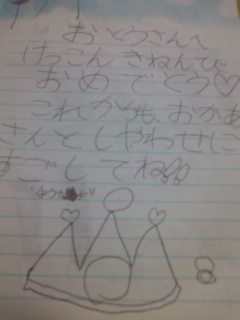 おとうさんへ
けっこん きねんび
おめでとう♡
これからも、おかあ
さんとしやわせに
すごしてね